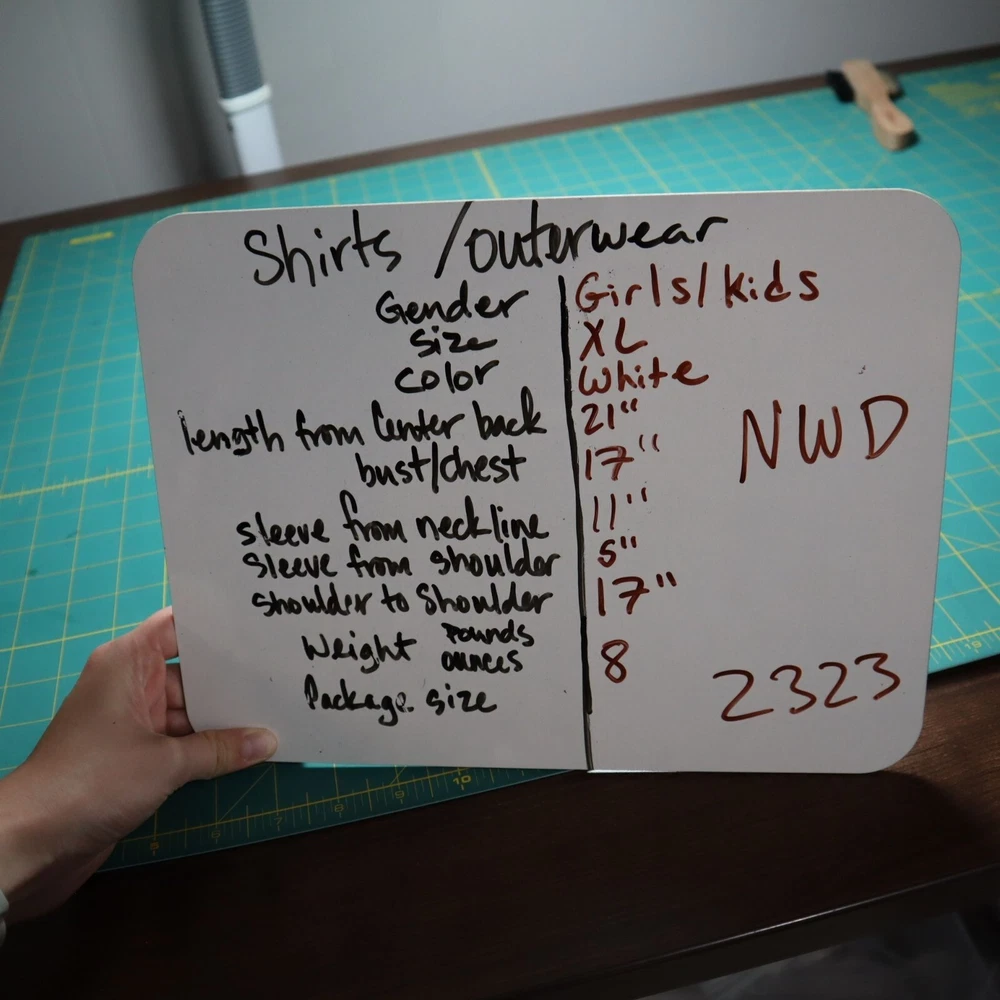 Shirts /outerwear
Gender Girls/Kids
Size XL
Color White
length from Center back 21"
bust/chest 17"
NWD
sleeve from neckline 11"
Sleeve from shoulder 5"
Shoulder to Shoulder 17"
Weight Pounds
ounces 8
Package size
2323
5 6 7 8 9 10